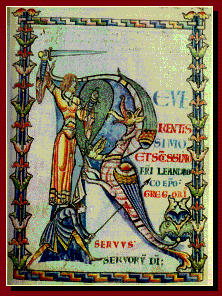 R EVE
RENTIS
SIMO
ET SCISSIMO
FRI LEANDRO
COEPO
GREGORI
SERVVS
SERVORV̄ DI: